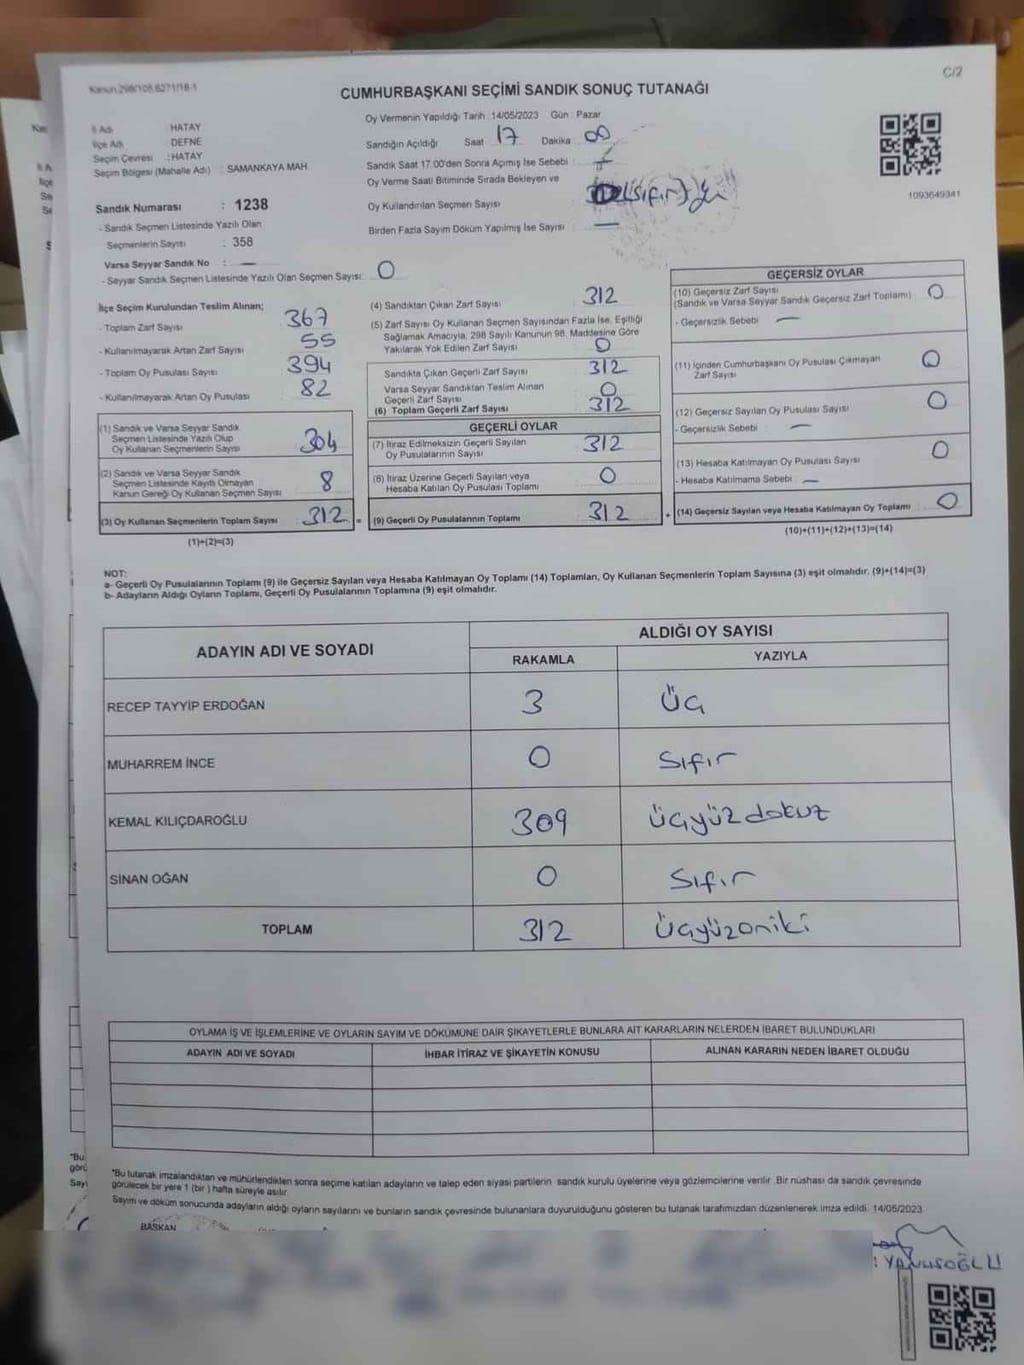 C/2
Kanun 298/105,6271/18-1
CUMHURBAŞKANI SEÇİMİ SANDIK SONUÇ TUTANAĞI
İl Adı HATAY
İlçe Adı DEFNE
Seçim Çevresi :HATAY
Seçim Bölgesi (Mahalle Adı) : SAMANKAYA MAH.
Sandık Numarası : 1238
- Sandık Seçmen Listesinde Yazılı Olan
Seçmenlerin Sayısı : 358
Varsa Seyyar Sandık No : —
- Seyyar Sandık Seçmen Listesinde Yazılı Olan Seçmen Sayısı: 0
Oy Vermenin Yapıldığı Tarih 14/05/2023 Gün : Pazar
Sandığın Açıldığı Saat 17 Dakika 00
Sandık Saat 17.00'den Sonra Açımış İse Sebebi :
Oy Verme Saati Bitiminde Sırada Bekleyen ve
Oy Kullandırılan Seçmen Sayısı : (sıfır)
Birden Fazla Sayım Döküm Yapılmış İse Sayısı : —
1093649341
İlçe Seçim Kurulundan Teslim Alınan;
- Toplam Zarf Sayısı 367
- Kullanılmayarak Artan Zarf Sayısı 55
- Toplam Oy Pusulası Sayısı 394
- Kullanılmayarak Artan Oy Pusulası 82
(1) Sandık ve Varsa Seyyar Sandık
Seçmen Listesinde Yazılı Olup
Oy Kullanan Seçmenlerin Sayısı 304
(2) Sandık ve Varsa Seyyar Sandık
Seçmen Listesinde Kayıtlı Olmayan
Kanun Gereği Oy Kullanan Seçmen Sayısı 8
(3) Oy Kullanan Seçmenlerin Toplam Sayısı 312 =
(1)+(2)=(3)
(4) Sandıktan Çıkan Zarf Sayısı 312
(5) Zarf Sayısı Oy Kullanan Seçmen Sayısından Fazla İse, Eşitliği
Sağlamak Amacıyla, 298 Sayılı Kanunun 98. Maddesine Göre
Yakılarak Yok Edilen Zarf Sayısı 0
Sandıkta Çıkan Geçerli Zarf Sayısı 312
Varsa Seyyar Sandıktan Teslim Alınan
Geçerli Zarf Sayısı 0
(6) Toplam Geçerli Zarf Sayısı 312
GEÇERLİ OYLAR
(7) İtiraz Edilmeksizin Geçerli Sayılan
Oy Pusulalarının Sayısı 312
(8) İtiraz Üzerine Geçerli Sayılan veya
Hesaba Katılan Oy Pusulası Toplamı 0
(9) Geçerli Oy Pusulalarının Toplamı 312 +
GEÇERSİZ OYLAR
(10) Geçersiz Zarf Sayısı
(Sandık ve Varsa Seyyar Sandık Geçersiz Zarf Toplamı) 0
- Geçersizlik Sebebi —
(11) İçinden Cumhurbaşkanı Oy Pusulası Çıkmayan
Zarf Sayısı 0
(12) Geçersiz Sayılan Oy Pusulası Sayısı 0
- Geçersizlik Sebebi —
(13) Hesaba Katılmayan Oy Pusulası Sayısı 0
- Hesaba Katılmama Sebebi —
(14) Geçersiz Sayılan veya Hesaba Katılmayan Oy Toplamı 0
(10)+(11)+(12)+(13)=(14)
NOT:
a- Geçerli Oy Pusulalarının Toplamı (9) ile Geçersiz Sayılan veya Hesaba Katılmayan Oy Toplamı (14) Toplamları, Oy Kullanan Seçmenlerin Toplam Sayısına (3) eşit olmalıdır. (9)+(14)=(3)
b- Adayların Aldığı Oyların Toplamı, Geçerli Oy Pusulalarının Toplamına (9) eşit olmalıdır.
ADAYIN ADI VE SOYADI
ALDIĞI OY SAYISI
RAKAMLA YAZIYLA
RECEP TAYYİP ERDOĞAN 3 Üç
MUHARREM İNCE 0 Sıfır
KEMAL KILIÇDAROĞLU 309 Üçyüzdokuz
SİNAN OĞAN 0 Sıfır
TOPLAM 312 Üçyüzoniki
OYLAMA İŞ VE İŞLEMLERİNE VE OYLARIN SAYIM VE DÖKÜMÜNE DAİR ŞİKAYETLERLE BUNLARA AİT KARARLARIN NELERDEN İBARET BULUNDUKLARI
ADAYIN ADI VE SOYADI İHBAR İTİRAZ VE ŞİKAYETİN KONUSU ALINAN KARARIN NEDEN İBARET OLDUĞU
*Bu tutanak imzalandıktan ve mühürlendikten sonra seçime katılan adayların ve talep eden siyasi partilerin sandık kurulu üyelerine veya gözlemcilerine verilir. Bir nüshası da sandık çevresinde
görülecek bir yere 1 (bir ) hafta süreyle asılır.
Sayım ve döküm sonucunda adayların aldığı oyların sayılarını ve bunların sandık çevresinde bulunanlara duyurulduğunu gösteren bu tutanak tarafımızdan düzenlenerek imza edildi. 14/05/2023
BAŞKAN